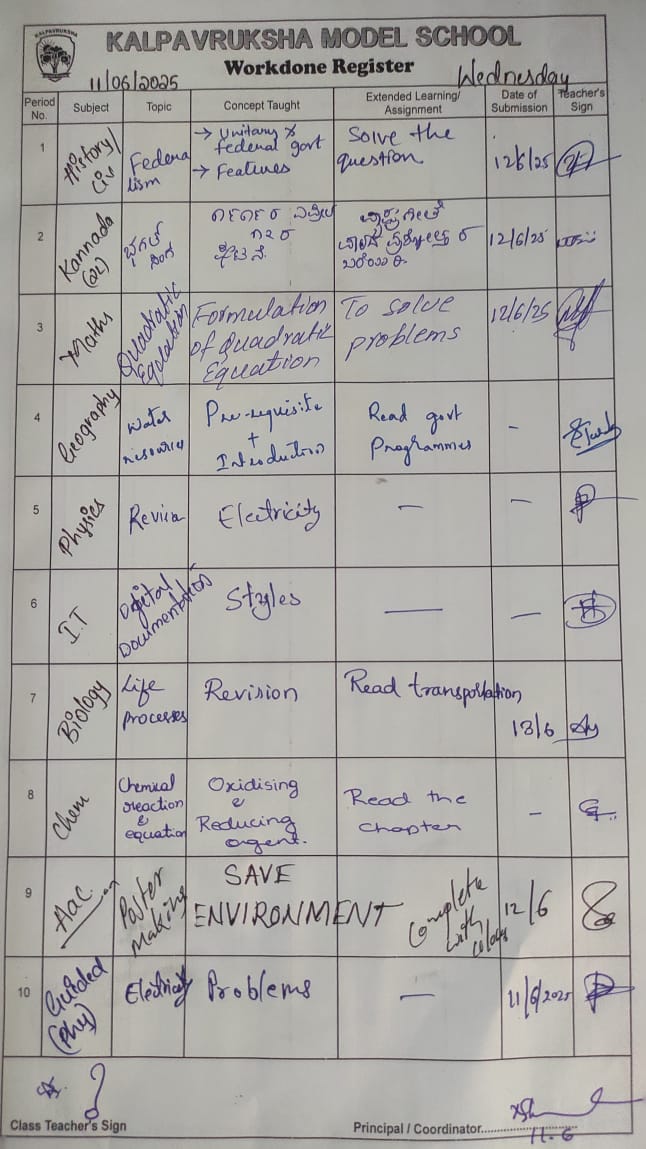 KALPAVRUKSHA
KALPAVRUKSHA MODEL SCHOOL
Workdone Register
11/06/2025
Wednesday
Period No. Subject Topic Concept Taught Extended Learning/ Assignment Date of Submission Teacher's Sign
1 History/ Civ
Federa
lism
→ Unitary &
federal govt
→ Features
Solve the
question
12/6/25
2 Kannada
(2L)
ಭಗತ್
12/6/25
3 Maths
Quadratic
Equation
Formulation
of Quadratic
Equation
To solve
problems
12/6/25
4 Geography
Water
resources
Pre-requisite
+
Introduction
Read govt
Programmes
-
5 Physics
Electricity
—
—
6 I.T
Digital
Documentation
Styles
—
—
7 Biology
Life
processes
Revision
Read transportation
13/6
8 Chem
Chemical
reaction
&
equation
Oxidising
&
Reducing
agent.
Read the
chapter
-
9
Poster
making
SAVE
ENVIRONMENT
Complete
with
12/6
10 Guided
(Phy)
Electricity
Problems
—
11/6/2025
11.6
Class Teacher's Sign
Principal / Coordinator